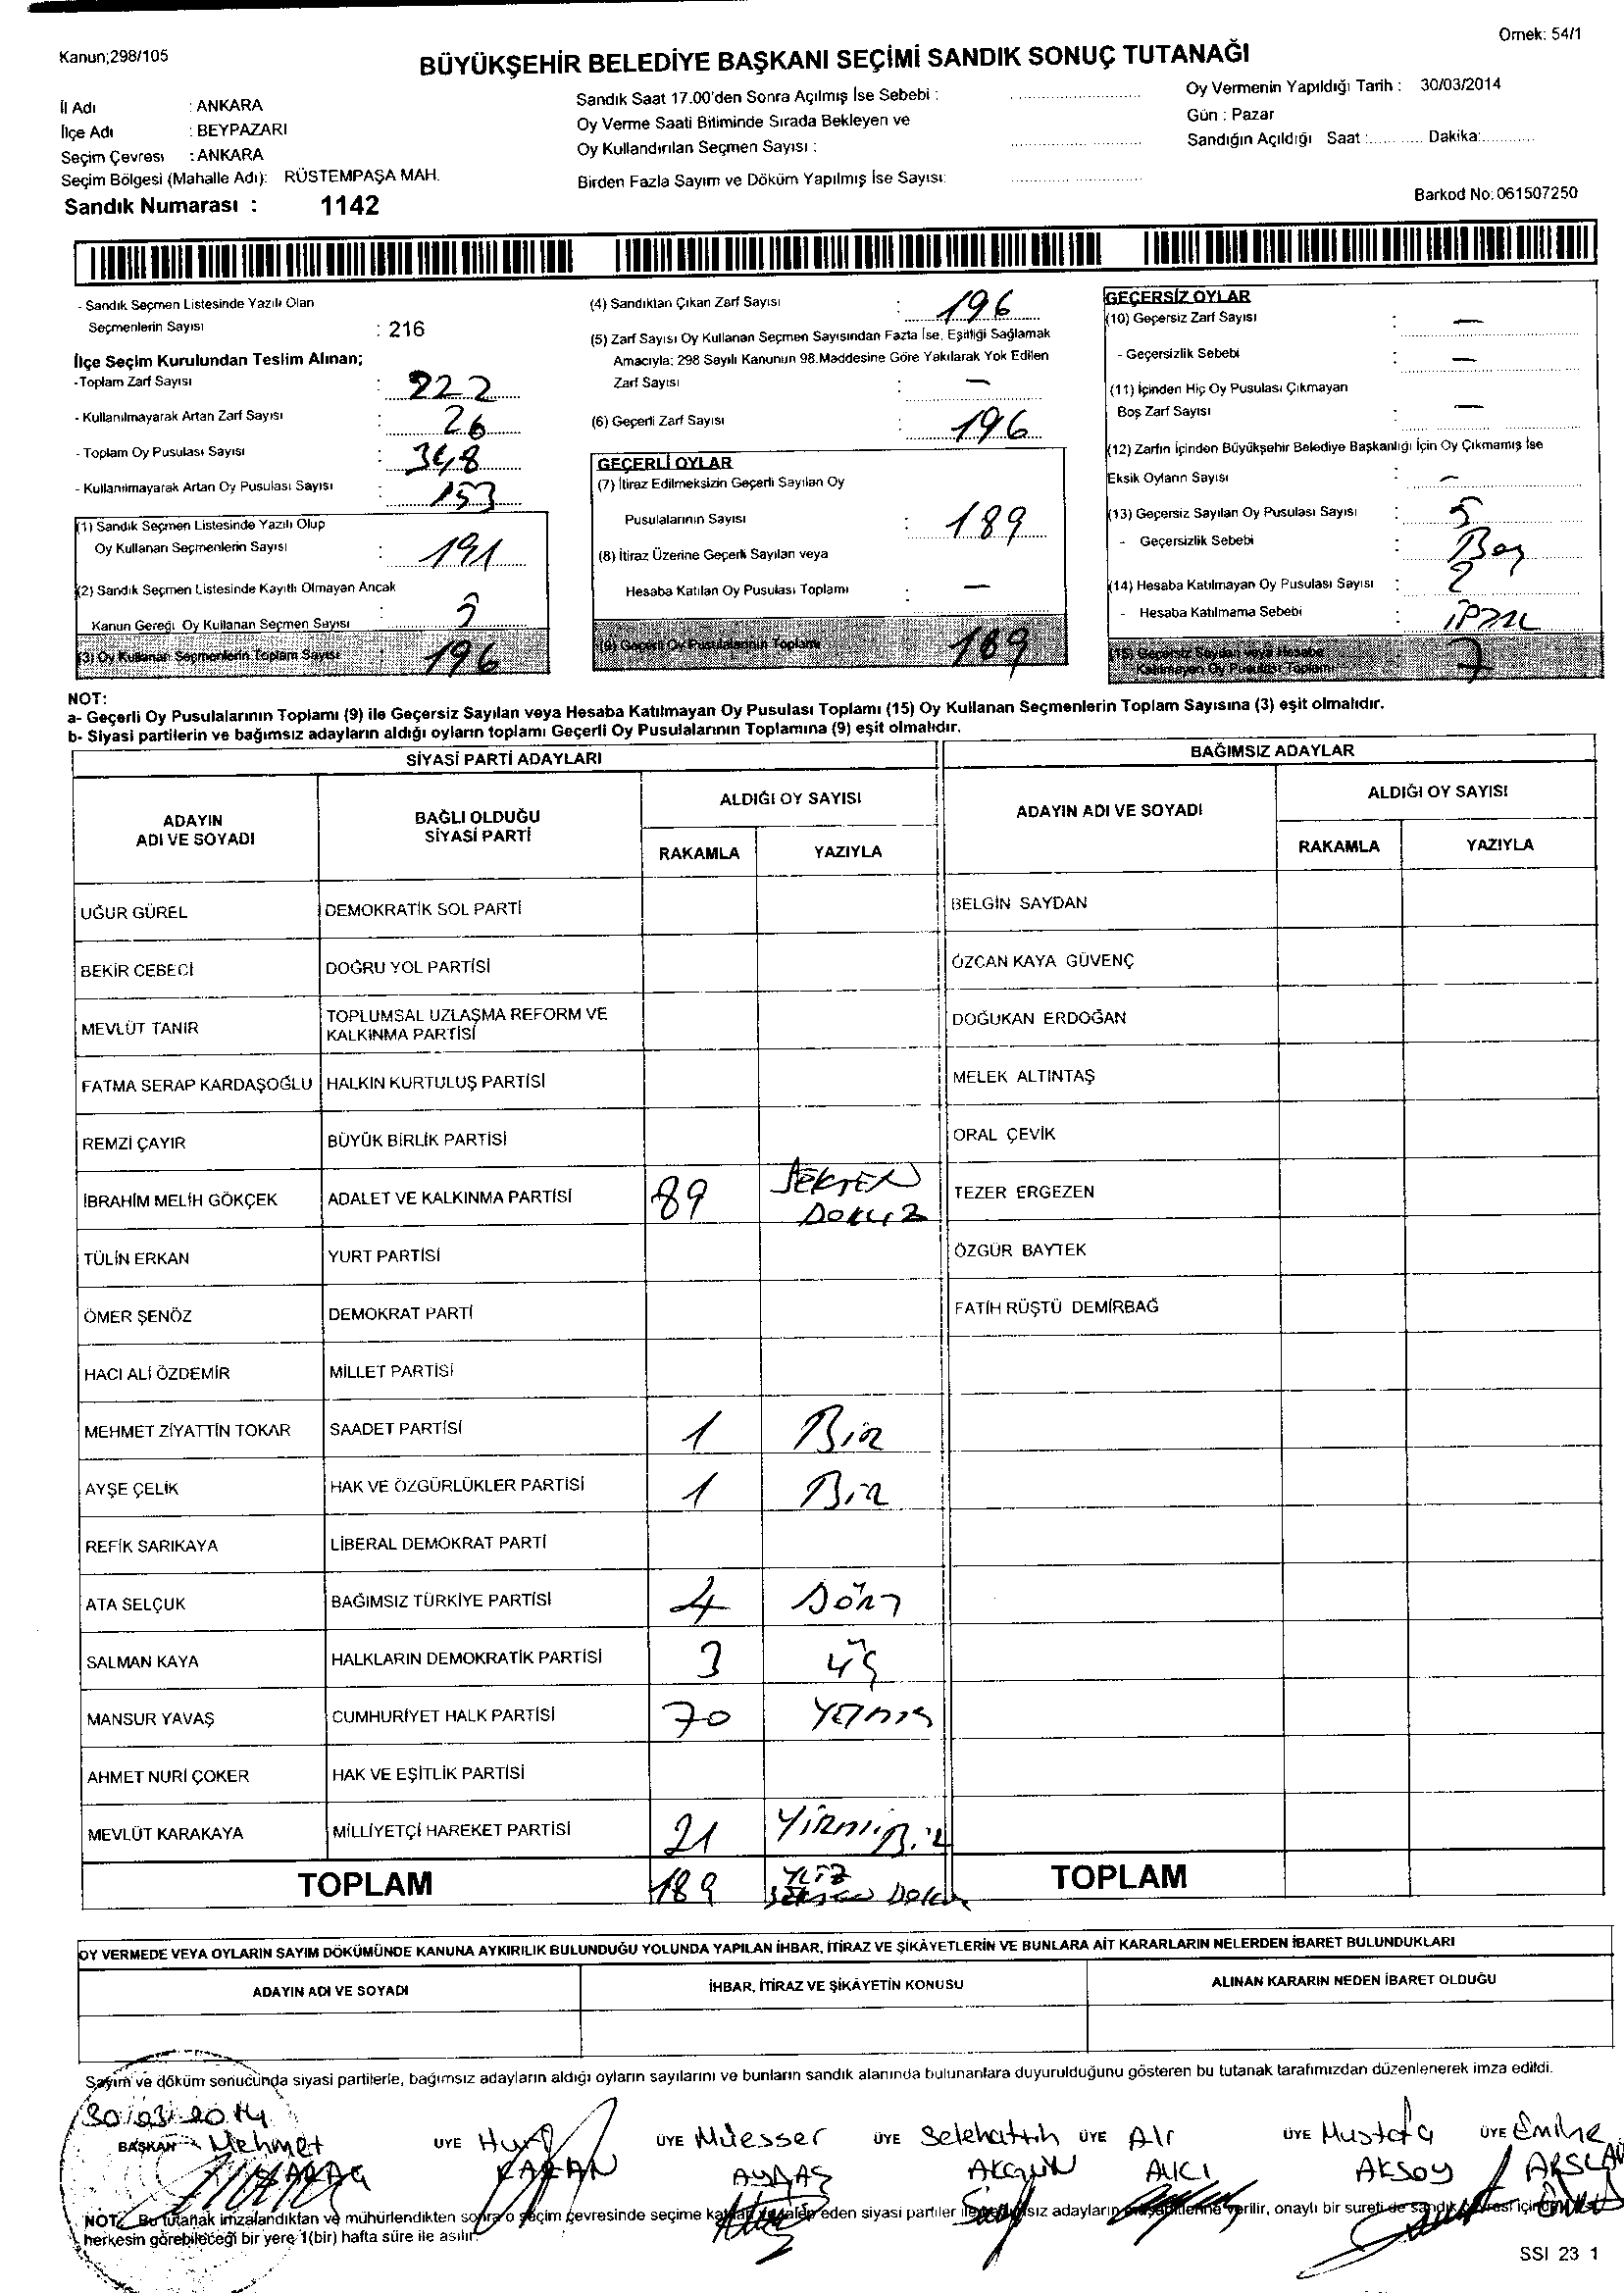 Kanun;298/105
Örnek: 54/1
BÜYÜKŞEHİR BELEDİYE BAŞKANI SEÇİMİ SANDIK SONUÇ TUTANAĞI
İl Adı : ANKARA
İlçe Adı : BEYPAZARI
Seçim Çevresi : ANKARA
Seçim Bölgesi (Mahalle Adı): RÜSTEMPAŞA MAH.
Sandık Numarası : 1142
Sandık Saat 17.00'den Sonra Açılmış İse Sebebi :
Oy Verme Saati Bitiminde Sırada Bekleyen ve
Oy Kullandırılan Seçmen Sayısı :
Birden Fazla Sayım ve Döküm Yapılmış İse Sayısı:
Oy Vermenin Yapıldığı Tarih : 30/03/2014
Gün : Pazar
Sandığın Açıldığı Saat :........... Dakika:............
Barkod No: 061507250
- Sandık Seçmen Listesinde Yazılı Olan
Seçmenlerin Sayısı : 216
İlçe Seçim Kurulundan Teslim Alınan;
-Toplam Zarf Sayısı : 222
- Kullanılmayarak Artan Zarf Sayısı : 26
- Toplam Oy Pusulası Sayısı : 348
- Kullanılmayarak Artan Oy Pusulası Sayısı : 153
(1) Sandık Seçmen Listesinde Yazılı Olup
Oy Kullanan Seçmenlerin Sayısı : 191
(2) Sandık Seçmen Listesinde Kayıtlı Olmayan Ancak
Kanun Gereği Oy Kullanan Seçmen Sayısı : 5
(3) Oy Kullanan Seçmenlerin Toplam Sayısı : 196
(4) Sandıktan Çıkan Zarf Sayısı : 196
(5) Zarf Sayısı Oy Kullanan Seçmen Sayısından Fazla İse, Eşitliği Sağlamak
Amacıyla; 298 Sayılı Kanunun 98.Maddesine Göre Yakılarak Yok Edilen
Zarf Sayısı : —
(6) Geçerli Zarf Sayısı : 196
GEÇERLİ OYLAR
(7) İtiraz Edilmeksizin Geçerli Sayılan Oy
Pusulalarının Sayısı : 189
(8) İtiraz Üzerine Geçerli Sayılan veya
Hesaba Katılan Oy Pusulası Toplamı : —
(9) Geçerli Oy Pusulalarının Toplamı 189
GEÇERSİZ OYLAR
(10) Geçersiz Zarf Sayısı : —
- Geçersizlik Sebebi : —
(11) İçinden Hiç Oy Pusulası Çıkmayan
Boş Zarf Sayısı : —
(12) Zarfın İçinden Büyükşehir Belediye Başkanlığı İçin Oy Çıkmamış İse
Eksik Oyların Sayısı : —
(13) Geçersiz Sayılan Oy Pusulası Sayısı : 5
- Geçersizlik Sebebi : Boş
(14) Hesaba Katılmayan Oy Pusulası Sayısı : 2
- Hesaba Katılmama Sebebi : İPTAL
(15) Geçersiz Sayılan veya Hesaba
Katılmayan Oy Pusulası Toplamı 7
NOT:
a- Geçerli Oy Pusulalarının Toplamı (9) ile Geçersiz Sayılan veya Hesaba Katılmayan Oy Pusulası Toplamı (15) Oy Kullanan Seçmenlerin Toplam Sayısına (3) eşit olmalıdır.
b- Siyasi partilerin ve bağımsız adayların aldığı oyların toplamı Geçerli Oy Pusulalarının Toplamına (9) eşit olmalıdır.
SİYASİ PARTİ ADAYLARI
ADAYIN ADI VE SOYADI BAĞLI OLDUĞU SİYASİ PARTİ ALDIĞI OY SAYISI
RAKAMLA YAZIYLA
UĞUR GÜREL DEMOKRATİK SOL PARTİ
BEKİR CEBECİ DOĞRU YOL PARTİSİ
MEVLÜT TANIR TOPLUMSAL UZLAŞMA REFORM VE KALKINMA PARTİSİ
FATMA SERAP KARDAŞOĞLU HALKIN KURTULUŞ PARTİSİ
REMZİ ÇAYIR BÜYÜK BİRLİK PARTİSİ
İBRAHİM MELİH GÖKÇEK ADALET VE KALKINMA PARTİSİ 89 SEKSEN DOKUZ
TÜLİN ERKAN YURT PARTİSİ
ÖMER ŞENÖZ DEMOKRAT PARTİ
HACI ALİ ÖZDEMİR MİLLET PARTİSİ
MEHMET ZİYATTİN TOKAR SAADET PARTİSİ 1 Bir
AYŞE ÇELİK HAK VE ÖZGÜRLÜKLER PARTİSİ 1 Bir
REFİK SARIKAYA LİBERAL DEMOKRAT PARTİ
ATA SELÇUK BAĞIMSIZ TÜRKİYE PARTİSİ 4 DÖRT
SALMAN KAYA HALKLARIN DEMOKRATİK PARTİSİ 3 üç
MANSUR YAVAŞ CUMHURİYET HALK PARTİSİ 70 Yetmiş
AHMET NURİ ÇOKER HAK VE EŞİTLİK PARTİSİ
MEVLÜT KARAKAYA MİLLİYETÇİ HAREKET PARTİSİ 21 YİRMİ BİR
TOPLAM 189 YÜZ SEKSEN DOKUZ
BAĞIMSIZ ADAYLAR
ADAYIN ADI VE SOYADI ALDIĞI OY SAYISI
RAKAMLA YAZIYLA
BELGİN SAYDAN
ÖZCAN KAYA GÜVENÇ
DOĞUKAN ERDOĞAN
MELEK ALTINTAŞ
ORAL ÇEVİK
TEZER ERGEZEN
ÖZGÜR BAYTEK
FATİH RÜŞTÜ DEMİRBAĞ
TOPLAM
OY VERMEDE VEYA OYLARIN SAYIM DÖKÜMÜNDE KANUNA AYKIRILIK BULUNDUĞU YOLUNDA YAPILAN İHBAR, İTİRAZ VE ŞİKAYETLERİN VE BUNLARA AİT KARARLARIN NELERDEN İBARET BULUNDUKLARI
ADAYIN ADI VE SOYADI İHBAR, İTİRAZ VE ŞİKAYETİN KONUSU ALINAN KARARIN NEDEN İBARET OLDUĞU
Sayım ve döküm sonucunda siyasi partilerle, bağımsız adayların aldığı oyların sayılarını ve bunların sandık alanında bulunanlara duyurulduğunu gösteren bu tutanak tarafımızdan düzenlenerek imza edildi.
30/03/2014
BAŞKAN Mehmet ÜYE ÜYE Müesser ÜYE Selehattin ÜYE Ali ÜYE Mustafa ÜYE Emine
AYDAŞ AKGÜN ALICI AKSOY ARSLAN
NOT: Bu tutanak imzalandıktan ve mühürlendikten sonra o seçim çevresinde seçime katılan eden siyasi partiler ile bağımsız adayların verilir, onaylı bir sureti de sandık çevresi içinde
herkesin görebileceği bir yere 1(bir) hafta süre ile asılır.
SSI 23 1